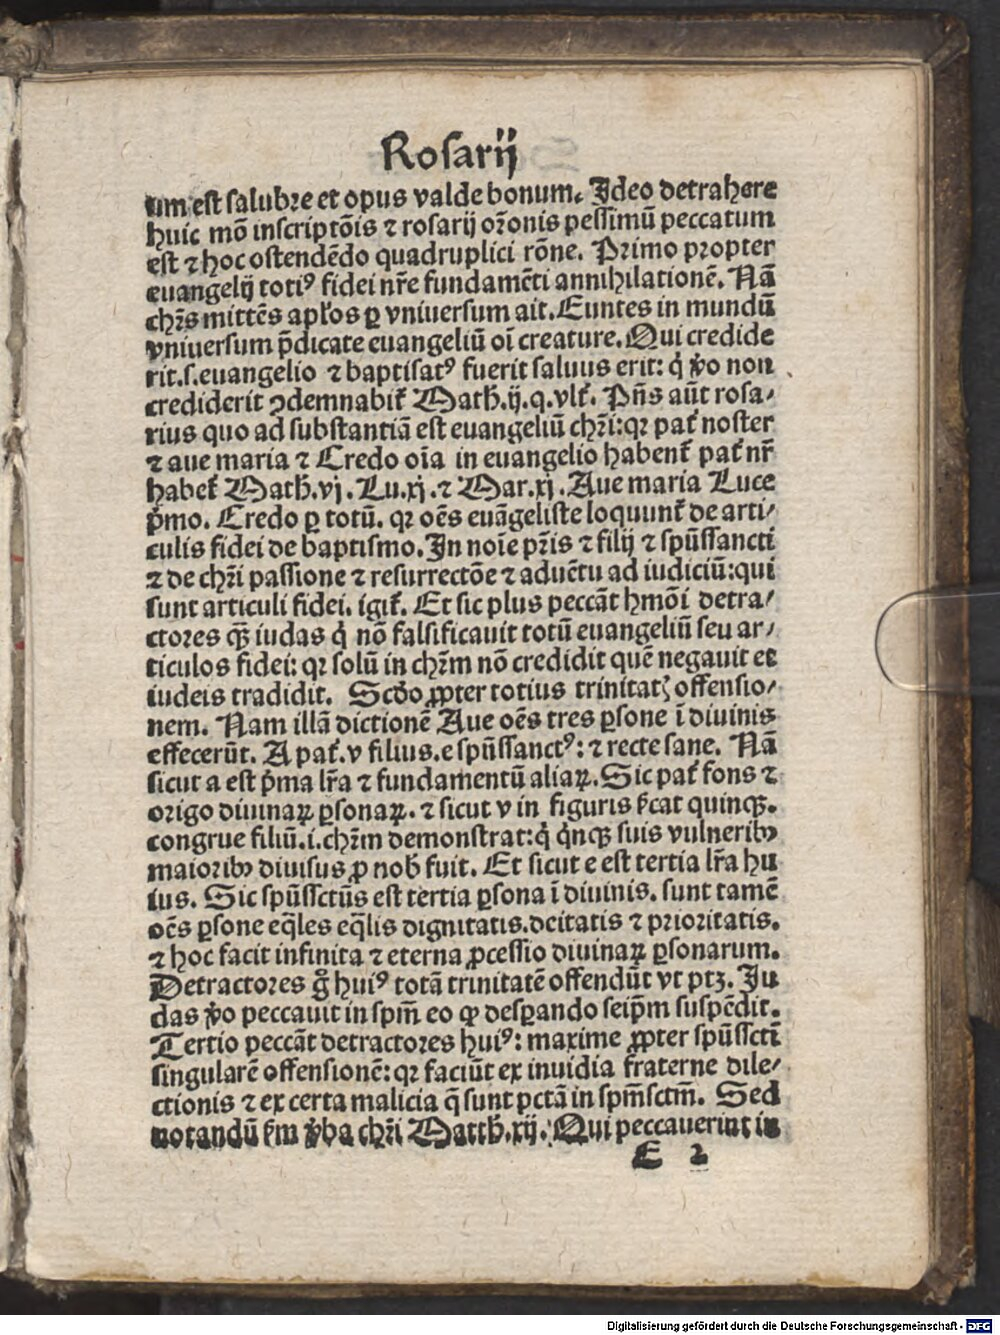 Rosarij
um est salubre et opus valde bonum. Ideo detrahere
huic mō inscriptōis ⁊ rosarij orōnis pessimū peccatum
est ⁊ hoc ostendēdo quadruplici rōne. Primo propter
euangelij totiꝰ fidei nr̄e fundamēti annihilationē. Nā
chr̄s mittēs apl'os ꝑ vniuersum ait. Euntes in mundū
vniuersum p̄dicate euangeliū oī creature. Qui credide
rit.s.euangelio ⁊ baptisatꝰ fuerit saluus erit: q̇ v̊o non
crediderit ꝯdemnabit᷑ Math̄.ij.q.vlt᷑. Pn̄s aūt rosa/
rius quo ad substantiā est euangeliū chr̄i: qꝛ pat᷑ noster
⁊ aue maria ⁊ Credo oīa in euangelio habent᷑ pat᷑ nr̄
habet᷑ Math̄.vj. Lu.xj. ⁊ Mar.xj. Aue maria Luce
p̍mo. Credo ꝑ totū. qꝛ oēs euāgeliste loquunt᷑ de arti/
culis fidei de baptismo. In noīe pr̄is ⁊ filij ⁊ spūssancti
⁊ de chr̄i passione ⁊ resurrectōe ⁊ aduētu ad iudiciū: qui
sunt articuli fidei. igit᷑. Et sic plus peccāt hmōi detra/
ctores qꝫ̄ iudas q̇ nō falsificauit totū euangeliū seu ar/
ticulos fidei: qꝛ solū in chr̄m nō credidit quē negauit et
iudeis tradidit. Scd̊o ꝓpter totius trinitatꝭ offensio/
nem. Nam illā dictionē Aue oēs tres ꝑsone ī diuinis
effecerūt. A pat᷑. v filius. e spūssanctꝰ: ⁊ recte sane. Nā
sicut a est p̍ma lr̄a ⁊ fundamentū aliaꝝ. Sic pat᷑ fons ⁊
origo diuinaꝝ ꝑsonaꝝ. ⁊ sicut v in figuris s̄cat quinqꝫ.
congrue filiū.i.chr̄m demonstrat: q̇ q̍nqꝫ suis vulneribꝰ
maioribꝰ diuisus ꝓ nob̄ fuit. Et sicut e est tertia lr̄a hu
ius. Sic spūssctūs est tertia ꝑsona ī diuinis. sunt tamē
oēs ꝑsone eq̄les eq̄lis dignitatis.deitatis ⁊ prioritatis.
⁊ hoc facit infinita ⁊ eterna ꝓcessio diuinaꝝ ꝑsonarum.
Detractores g̊ huiꝰ totā trinitatē offendūt vt ptꝫ. Ju
das v̊o peccauit in spm̄ eo ꝙ desꝑando seip̄m suspēdit.
Tertio peccāt detractores huiꝰ: maxime ꝓpter spūssctī
singularē offensionē: qꝛ faciūt ex inuidia fraterne dile/
ctionis ⁊ ex certa malicia q̄ sunt pctā in spm̄sctm̄. Sed
notandū s̄m v̊ba chr̄i Matth̄.xij. Qui peccauerint in
E 2
Digitalisierung gefördert durch die Deutsche Forschungsgemeinschaft - DFG